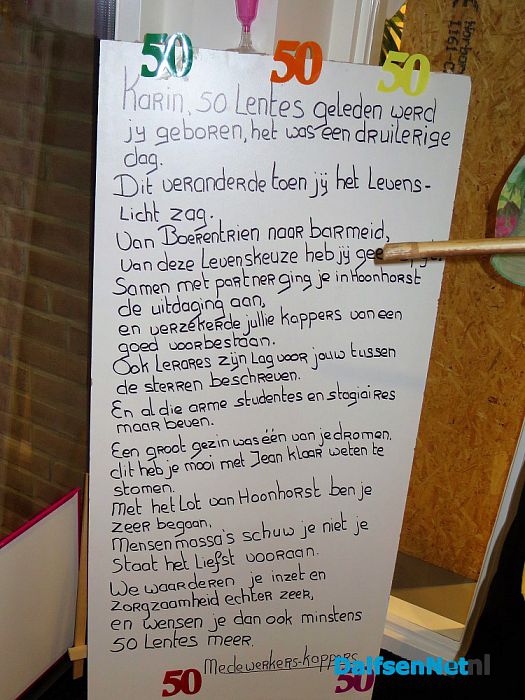 50 50 50
Karin, 50 Lentes geleden werd
jy geboren, het was een druilerige
dag.
Dit veranderde toen jij het Levens-
Licht zag.
Van Boerentrien naar barmeid,
van deze Levenskeuze heb jij
Samen met partner ging je in Hoonhorst
de uitdaging aan,
en verzekerde jullie Kappers van een
goed voorbestaan.
Ook Lerares zijn Lag voor jouw tussen
de sterren beschreven.
En al die arme studentes en stagiaires
maar beven.
Een groot gezin was één van je dromen,
dit heb je mooi met Jean klaar weten te
stomen.
Met het Lot van Hoonhorst ben je
zeer begaan,
Mensenmassa's schuw je niet je
staat het Liefst vooraan.
We waarderen je inzet en
zorgzaamheid echter zeer,
en wensen je dan ook minstens
50 Lentes meer.
Medewerkers-Kappers
DalfsenNet.nl
50 50